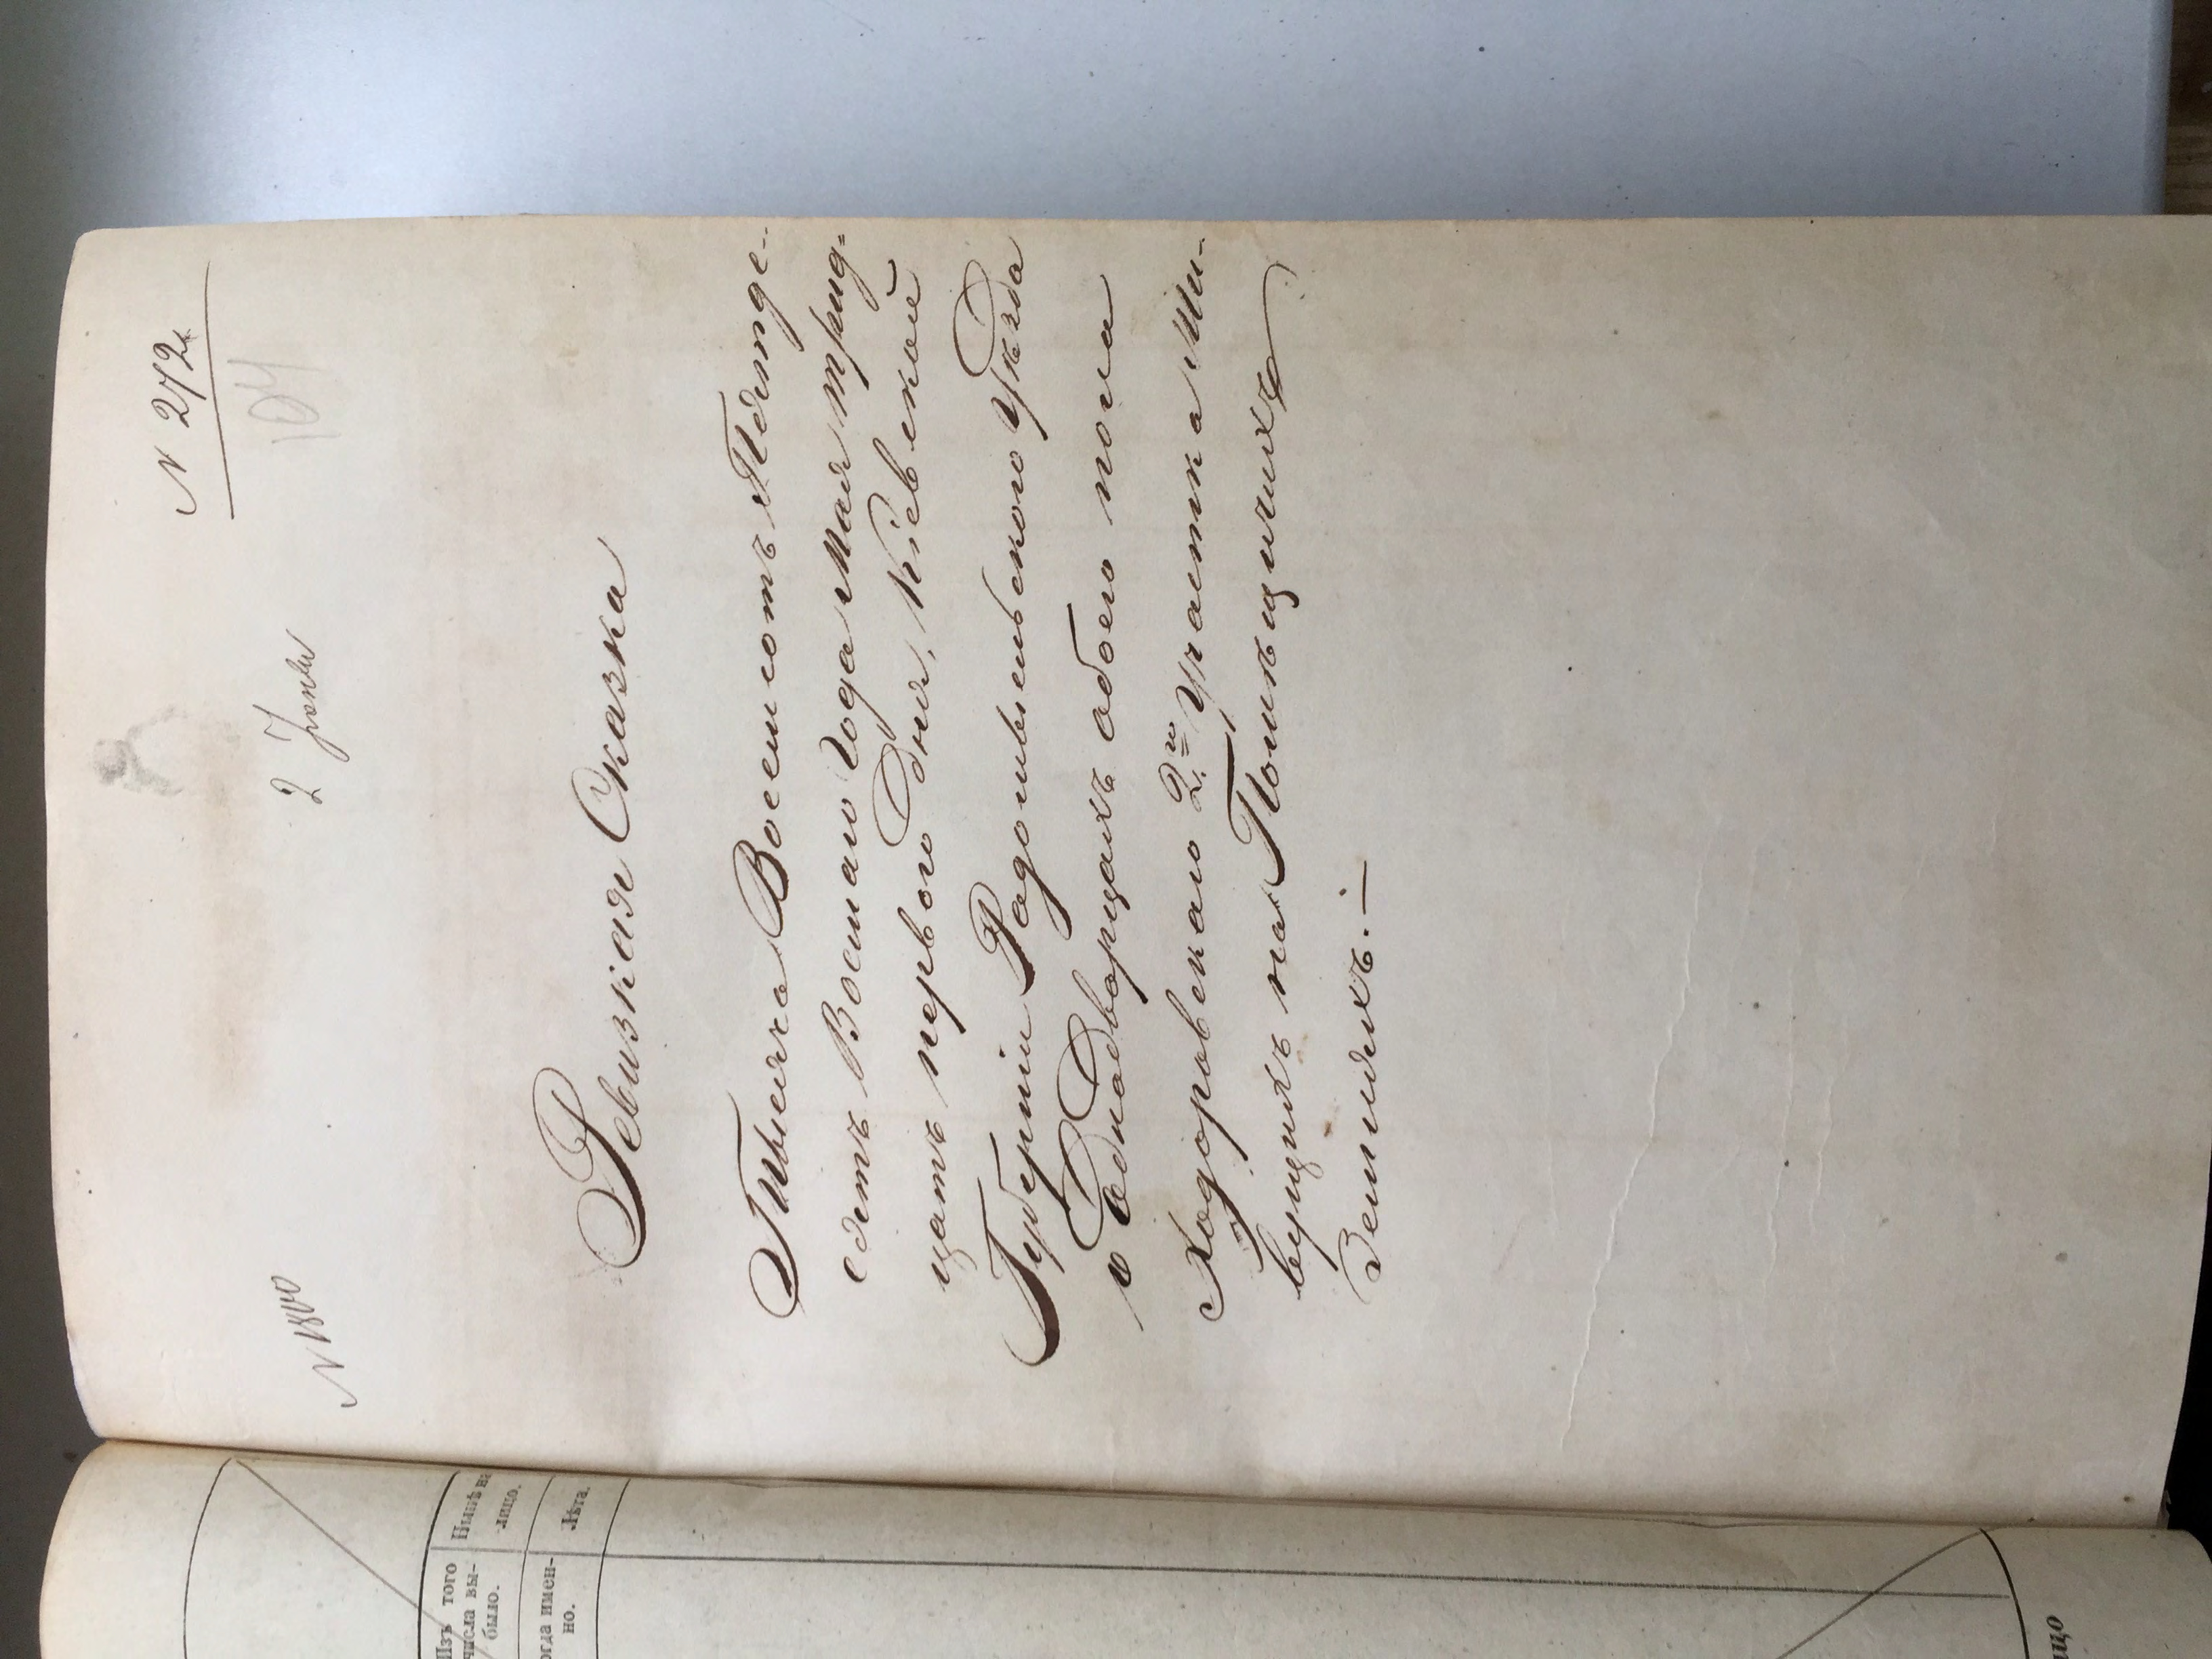 N 272
104
N 1800
2 Іюня
Ревизкая Сказка
Тысяча Восемсотъ Пятде-
сятъ Восмаго Года Мая трид=
цать первого дня, Кіевской
Губерніи Радомысльского Уѣзда
о Однодворцахъ обоего пола
Ходоровскаго 2го Участка Жи-
вущихъ на Помѣщичихъ
Земляхъ.—
Изъ того
числа вы-
было.
Нынѣ на
лицо.
огда имен-
но.
Лѣта.
ицо